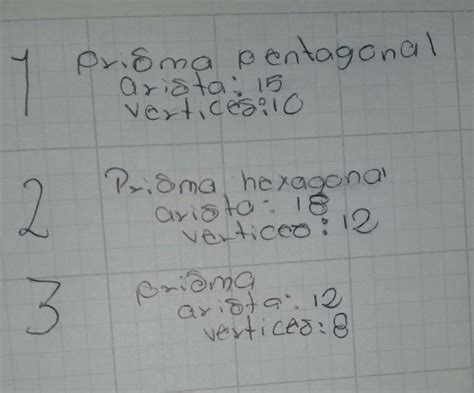 1 prisma pentagonal
arista: 15
vertices: 10
2 Prisma hexagonal
arista: 18
vertices: 12
3 prisma
arista: 12
vertices: 8